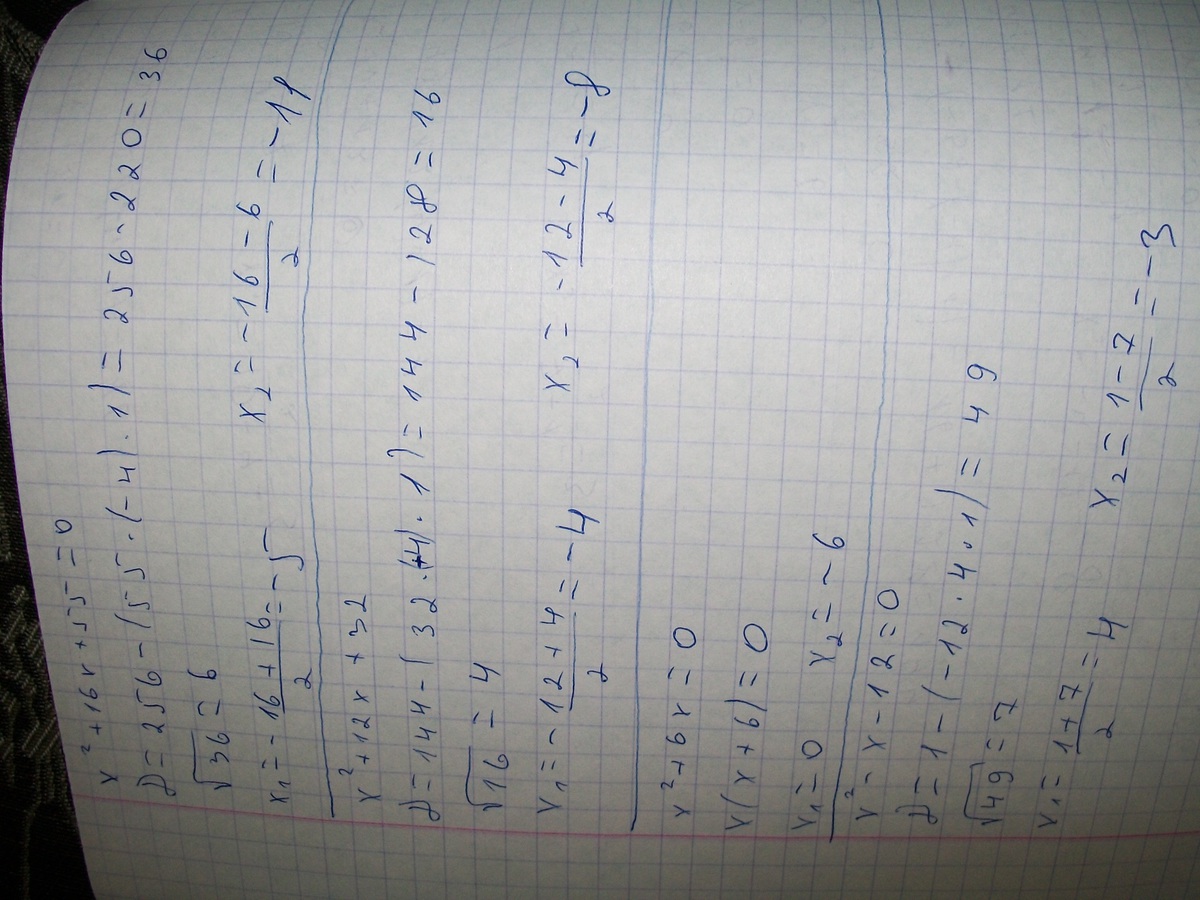 x² + 16x + 55 = 0
D = 256 - (55 · (-4) · 1) = 256 - 220 = 36
√36 = 6
x₁ = -16 + 16/2 = -5 x₂ = -16 - 6/2 = -11
x² + 12x + 32
D = 144 - (32 · (4) · 1) = 144 - 128 = 16
√16 = 4
x₁ = -12 + 4/2 = -4 x₂ = -12 - 4/2 = -8
x² + 6x = 0
x(x + 6) = 0
x₁ = 0 x₂ = -6
x² - x - 12 = 0
D = 1 - (-12 · 4 · 1) = 49
√49 = 7
x₁ = 1 + 7/2 = 4 x₂ = 1 - 7/2 = -3